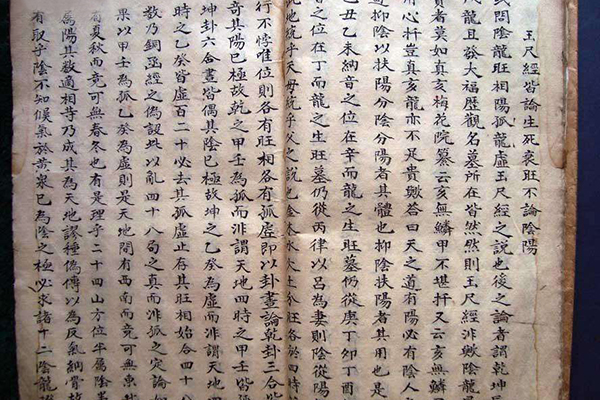 玉尺經皆論生死衰旺不論陰陽
或問陰龍旺相陽孤龍虛玉尺經之說也後之論者謂乾坤
龍且發大福歷觀名墓所在皆然然則玉尺經非歟陰龍
貴者莫如真亥梅花院纂云亥無鱗甲不堪扦又云亥無鱗
心扦豈真亥龍亦不足貴歟荅曰天之道有陽必有陰人之
道抑陰以扶陽分陰分陽者其體也抑陰扶陽者其用也是
丑乙未納音之位在辛而龍之生旺墓仍從庚丁卯丁酉
之位在丁而龍之生旺墓仍從丙律以吕為妻則陰從陽
地統乎天母統乎父之說也金木水火土各旺各於四時
行不悖惟位則各有旺相各有孤虛即以卦畫論乾卦三合皆
奇其陽已極故乾之甲壬為孤而非謂天地四時之甲壬皆孤
坤卦六合畫皆偶其陰已極故坤之乙癸為虛而非謂天地四
時之乙癸皆虛百二十必去其孤虛止存其旺相始合四十八
數乃銅函經之偽說以亂四十八局之真而非孤之定論如
果以甲壬為孤乙癸為虛則是天地間有西南而竟可無東
有夏秋而竟可無春冬也有是理乎二十四山方位半屬陰半
為陽其敎適相等乃成其為天地謬種偽傳以為反氣納骨故
有取乎陰不知候氣於黃泉已為陰之極必求諸十二陰龍